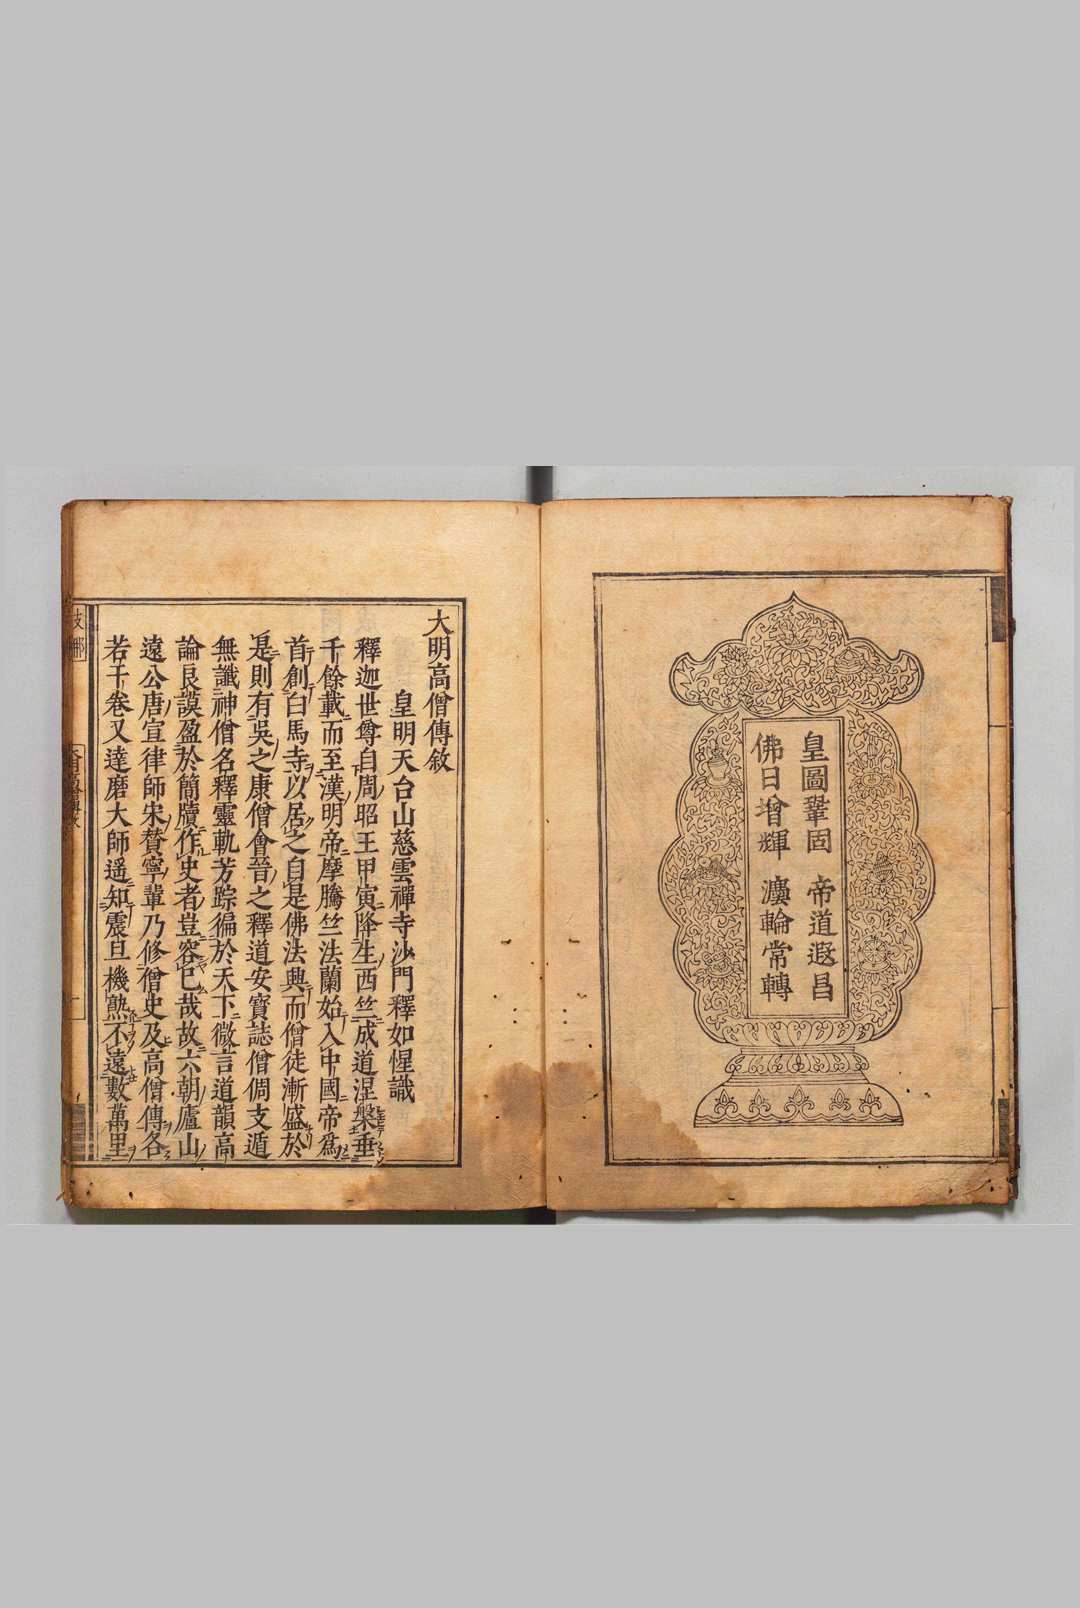 皇圖鞏固 帝道遐昌
佛日增輝 灋輪常轉
大明高僧傳敘
皇明天台山慈雲禪寺沙門釋如惺識
釋迦世尊自周昭王甲寅降生西竺成道涅槃垂
千餘載而至漢明帝摩騰竺法蘭始入中國帝爲
首創白馬寺以居之自是佛法興而僧徒漸盛於
是則有吳之康僧會晉之釋道安寶誌僧倜支遁
無讖神僧名釋靈軌芳踪徧於天下微言道韻高
論良謨盈於簡牘作史者豈容已哉故六朝廬山
遠公唐宣律師宋贊寧輩乃修僧史及高僧傳各
若干卷又達磨大師遥知震旦機熟不遠數萬里